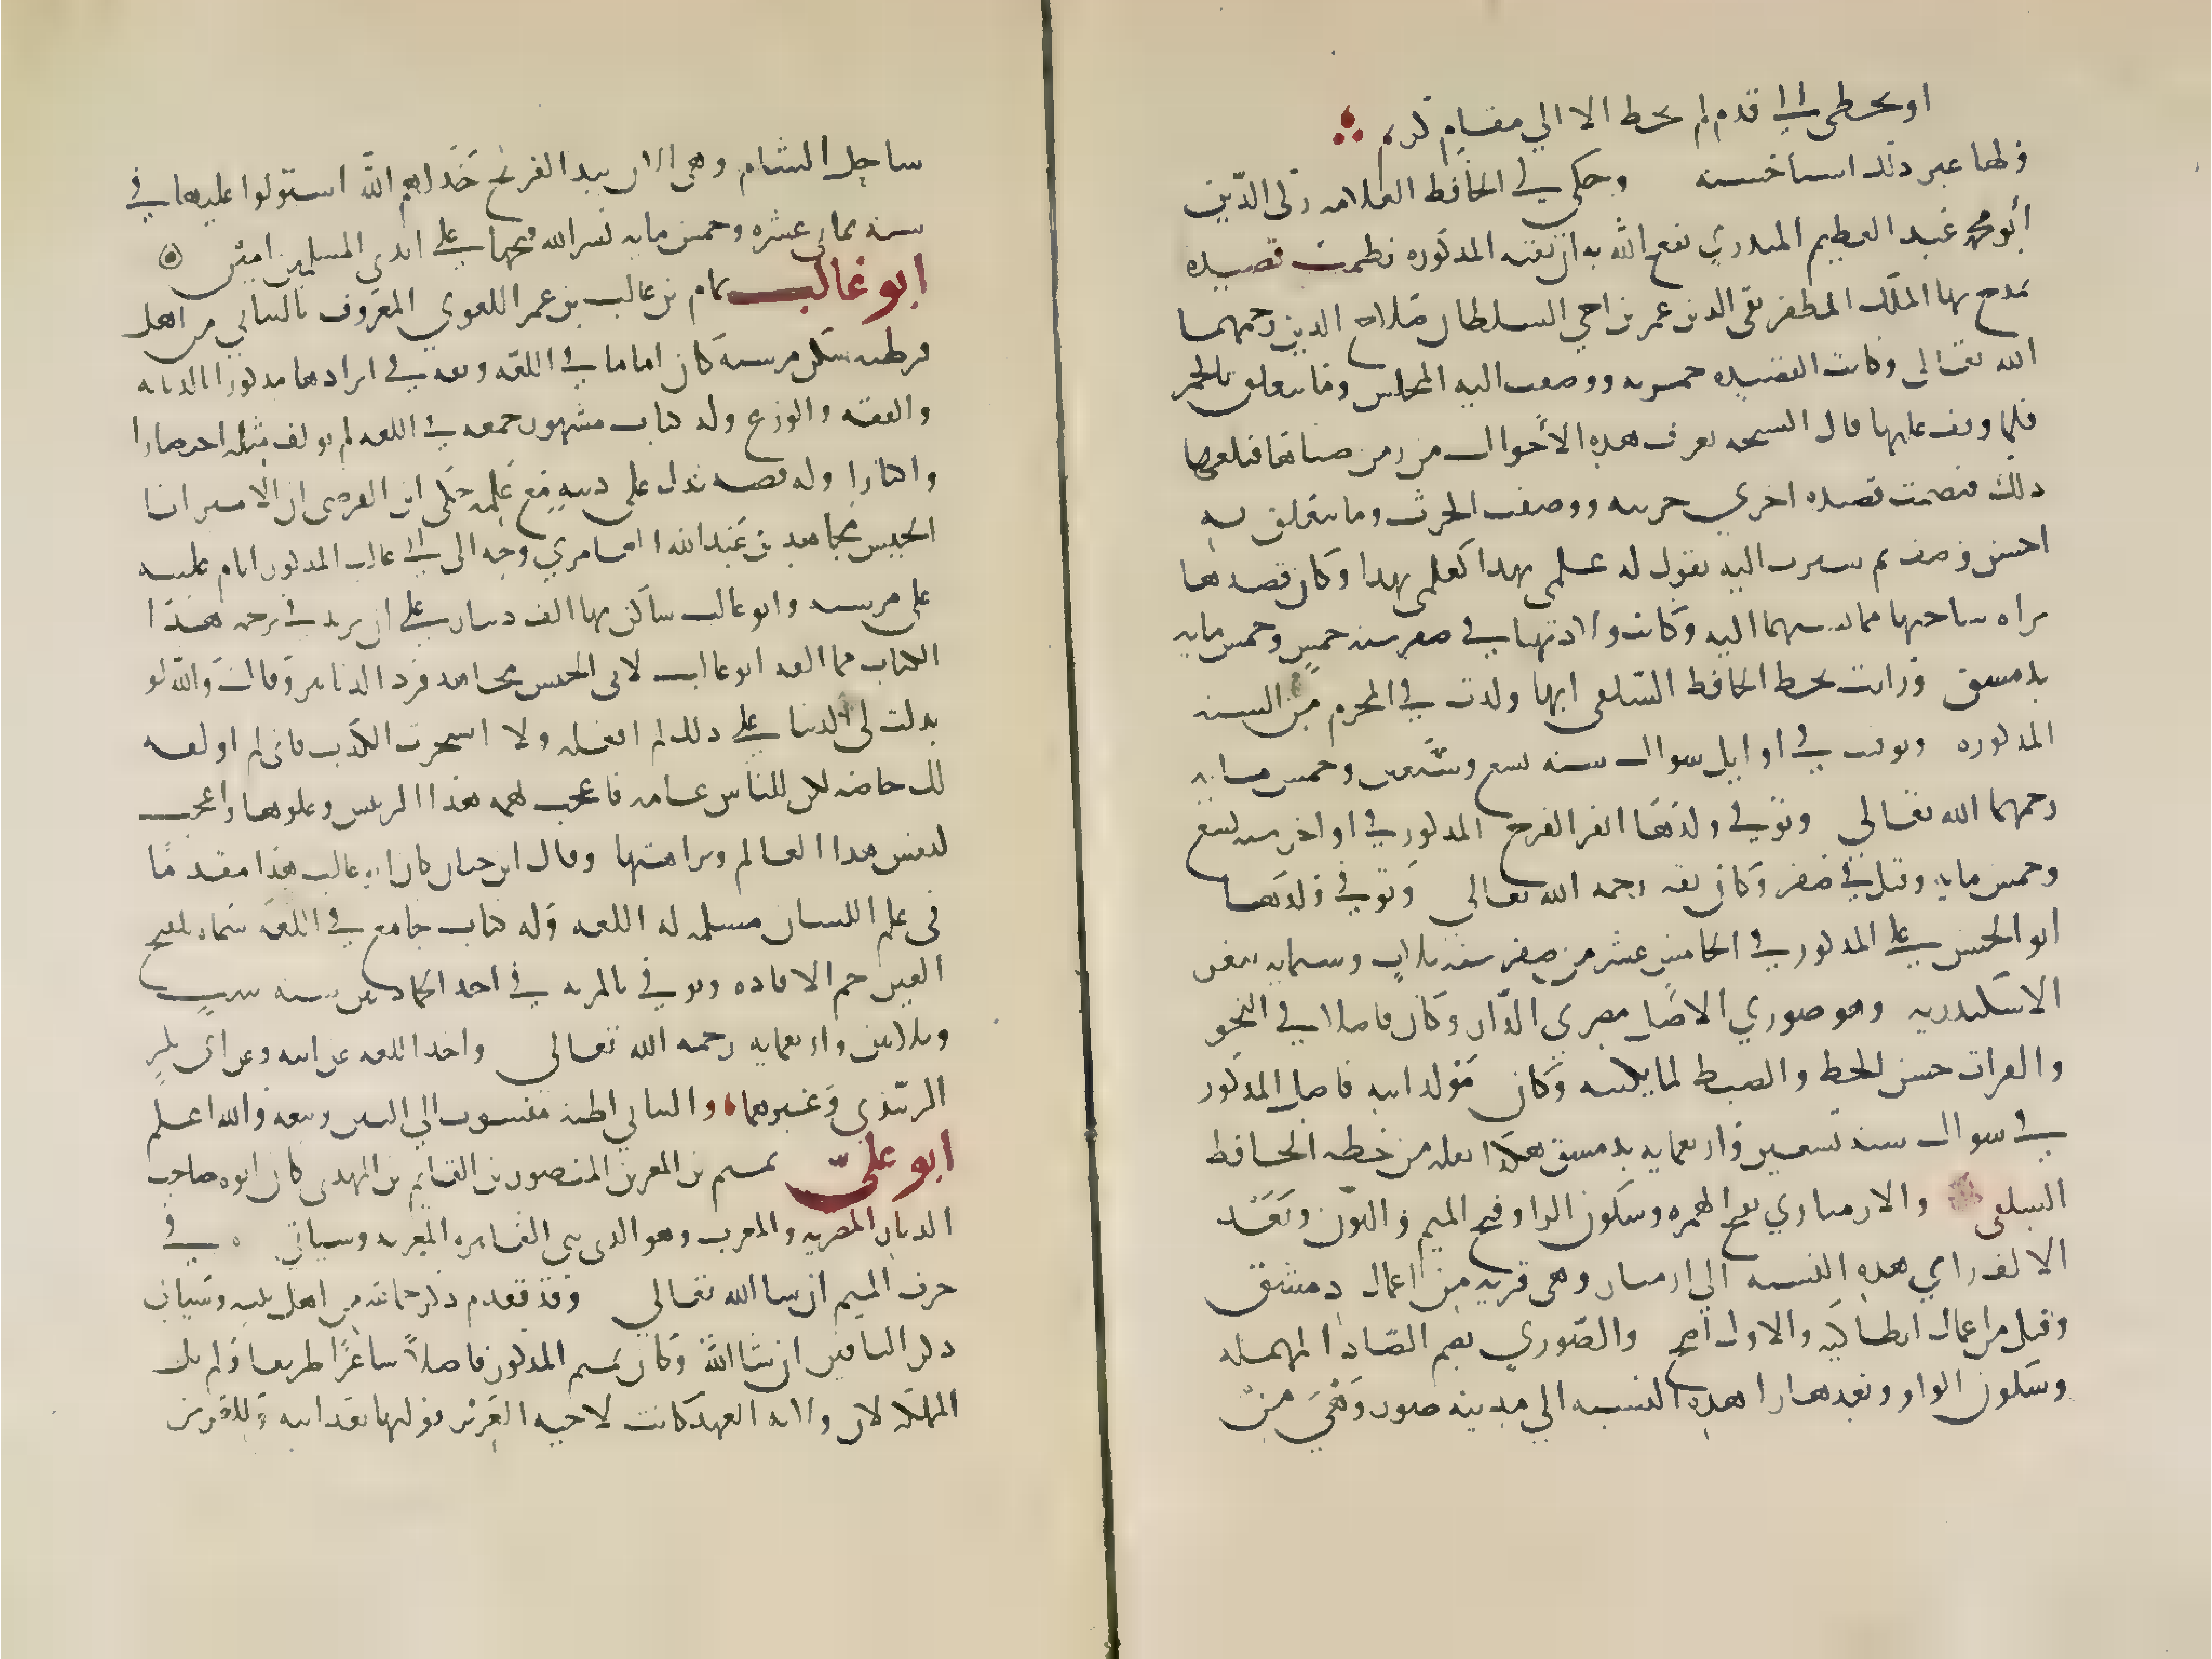 او بخطى الى قدم لم يخط الا الي مقام كريم
ولها غير ذلك اشيا حسنه وحكى لي الحافظ العلامه زكى الدين
أبو محمد عبد العظيم المنذري نفع الله به ان تقيه المذكوره نظمت قصيده
تمدح بها الملك المظفر تقى الدين عمر بن اخي السلطان صلاح الدين رحمهما
الله تعالى وكانت القصيده خمريه ووصفت اليه المجلس وما يتعلق بالخمر
فلما وقف عليها قال الشيخه تعرف هذه الأحوال من زمن صباها فبلغها
ذلك فنظمت قصيده اخري حربيه ووصفت الحرب وما يتعلق به
احسن وصف ثم سيرت اليه تقول له علمى بهذا كعلمى بهذا وكان قصدها
براه ساحتها مما نسبها اليه وكانت ولادتها في صفر سنه خمس وخمس مايه
بدمشق ورايت بخط الحافظ السلفى انها ولدت في المحرم من السنه
المذكوره وتوفيت في اوايل شوال سنه تسع وسبعين وخمس مايه
رحمهما الله تعالي وتوفي ولدها ابو الفرج المذكور في اواخر سنه تسع
وخمس مايه وقيل في صفر وكان ثقه رحمه الله تعالى وتوفي ولدها
ابو الحسن علي المذكور في الخامس عشر من صفر سنه ثلاث وستمايه بثغر
الاسكندريه وهو صوري الاصل مصرى الدار وكان فاضلا في النحو
والقرات حسن الخط والضبط لما يكتبه وكان مولد ابيه فاضل المذكور
في شوال سنه تسعين واربعمايه بدمشق هكذا نقلته من خطه الحافظ
السلفى والارمنازي بفتح الهمزه وسكون الرا وفتح الميم والنون وبعد
الالف زاي هذه النسبه الي ارمناز وهي قريه من اعمال دمشق
وقيل من اعمال انطاكيه والاول اصح والصوري بضم الصاد المهمله
وسكون الواو وبعدها را هذه النسبه الي مدينه صور وهي من
ساحل الشام وهى الان بيد الفرنج خذلهم الله استولوا عليها في
سنه ثمانى عشره وخمس مايه يسر الله فتحها علي ايدي المسلمين امين
ابو غالب تمام بن غالب بن عمر اللغوي المعروف بالتيانى من اهل
قرطبه سكن مرسيه كان اماما في اللغه وثقه في ايرادها مذكورا بالديانه
والفقه والورع وله كتاب مشهور جمعه في اللغه لم يولف مثله اختصارا
واكثارا وله قصه تدل على دينه مع علمه حكى ابن الفرضى ان الامير ابا
الجيش مجاهد بن عبد الله العامري وجه الى ابي غالب المذكور ايام غلبته
على مرسيه وابو غالب ساكن بها الف دينار علي ان يزيد في ترجمه هذا
الكتاب مما الفه ابو غالب لابى الجيش مجاهد فرد الدنانير وقال والله لو
بذلت لي الدنيا علي ذلك لم افعله ولا استجزت الكذب فانى لم اولفه
لك خاصه لكن للناس عامه فاعجب لهمه هذا الرئيس وعلوها واعجب
لنفس هذا العالم ونزاهتها وقال ابن حيان كان ابو غالب هذا مقدما
فى علم اللسان مسلمه له اللغه وله كتاب جامع في اللغه سماه تلقيح
العين جم الافاده وتوفي بالمريه في احد الجمادين سنه ست
وثلاثين واربعمايه رحمه الله تعالى واخذ اللغه عن ابيه وعن ابى بكر
الزبيدي وغيرهما والتيانى اظنه منسوب الي التين وبيعه والله اعلم
ابو علي تميم بن المعز بن المنصور بن القايم بن المهدى كان ابوه صاحب
الديار المصريه والمغرب وهو الذى بنى القاهره المعزيه وسياتي في
حرف الميم ان شا الله تعالي وقد تقدم ذكر جماعه من اهل بيته وسياتى
ذكر الباقين ان شا الله وكان تميم المذكور فاضلا شاعرا ظريفا ولم يل
المملكه لان ولايه العهد كانت لاخيه العزيز فوليها بعد ابيه وللعزيز